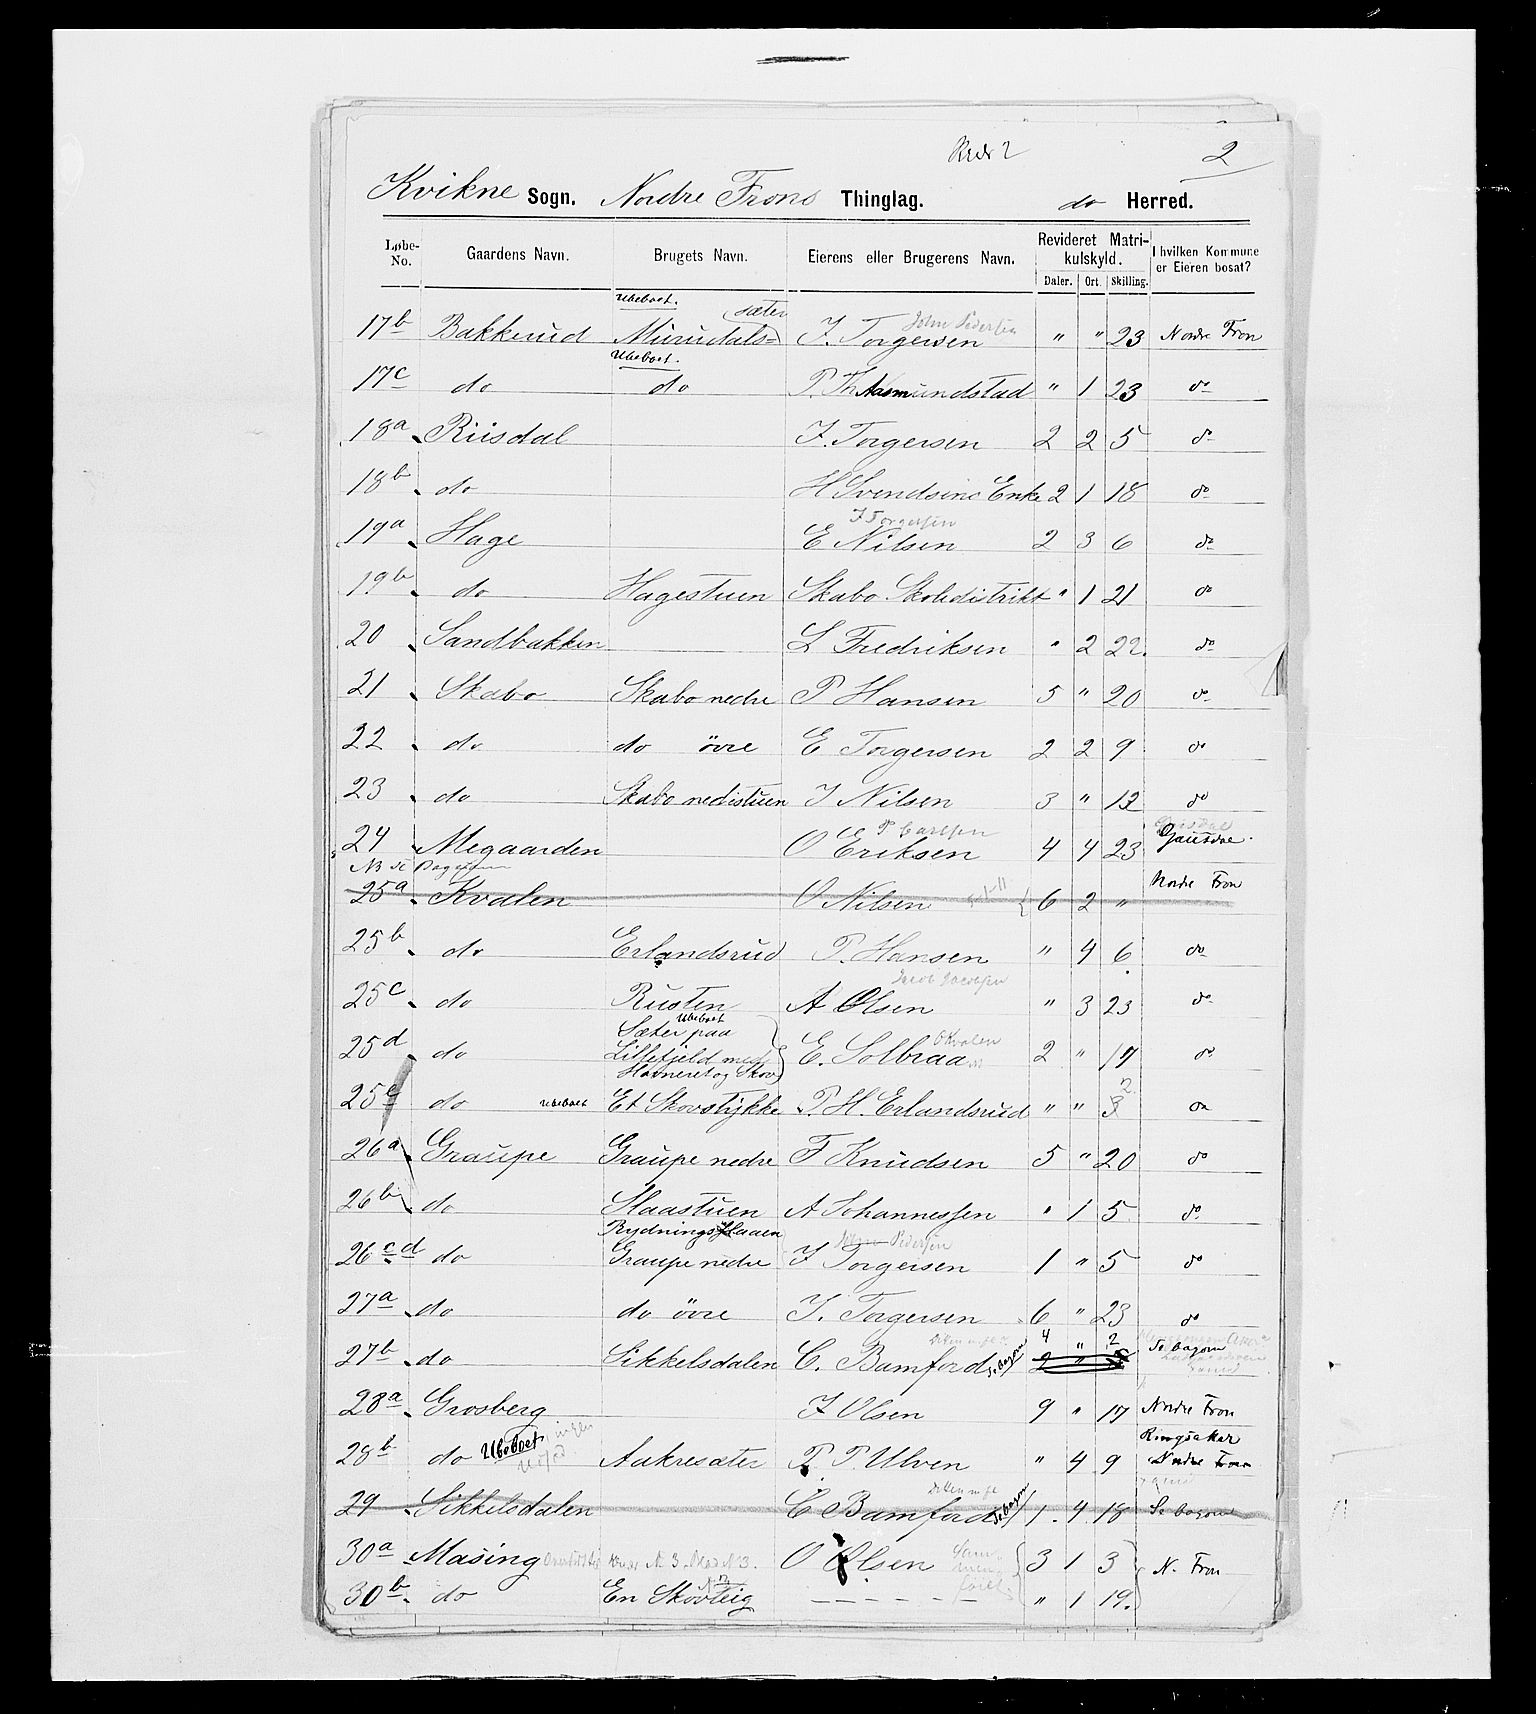 2
Kvikne Sogn. Nordre Frons Thinglag. do Herred.
Løbe-No. Gaardens Navn. Brugets Navn. Eierens eller Brugerens Navn. Revideret Matrikulskyld. I hvilken Kommune er Eieren bosat?
Daler. Ort. Skilling.
Ubeboet. sæter
17b Bakkerud Murudals= J. Torgersen John Pedersen " " 23 Nordre Fron
Ubeboet.
17c do do P. Th Aasmundstad " 1 23 do
18a Riisdal J. Torgersen 2 2 5 do
18b do H Svendsens Enke 2 1 18 do
J Torgersen
19a Hage E Nilsen 2 3 6 do
19b do Hagestuen Skabo Skoledistrikt " 1 21 do
20 Sandbakken L Fredriksen " 2 22. do
21 Skabo Skabo nedre P Hansen 5 " 20 do
22 do do övre E Torgersen 2 2 9 do
23 do Skabo nedistuen J Nilsen 3 " 12 do
24 Megaarden O Eriksen 4 4 23 Gausdal
25a Kvalen O Nilsen 6 2 " Nordre Fron
25b do Erlandsrud P. Hansen " 4 6 do
Jacob Jacobsen
25c do Rusten A Olsen " 3 23 do
Ubeboet
25d do Sæter paa Lillefjeld med Havneret og Skov E. Solbraa O Kvalen 2 " 17 do
2
25e do Ubeboet Et Skovstykke P. H. Erlandsrud " " 3 do
26a Graupe Graupe nedre F Knudsen 5 " 20 do
26b do Haastuen A Johannessen " 1 5 do
Rydnings Haaen
26c d do Graupe nedre J Torgersen John Pedersen 1 " 5 do
27a do do övre J. Torgersen 6 " 23 do
4 " 2
27b do Sikkelsdalen C. Bamford Se bagom 2 " Se bagom
28a Grosberg J Olsen 9 " 17 Nordre Fron
Ringsaker
28b do Ubeboet Aakresæter P. P. Ulven " 4 9 Nordre Fron
29 Sikkelsdalen C Bamford Se bagom 1. 4 18 Se bagom
30a Masing O Olsen 3 1 3 N. Fron
30b do En Skovteig — — — — — — " 1 19.